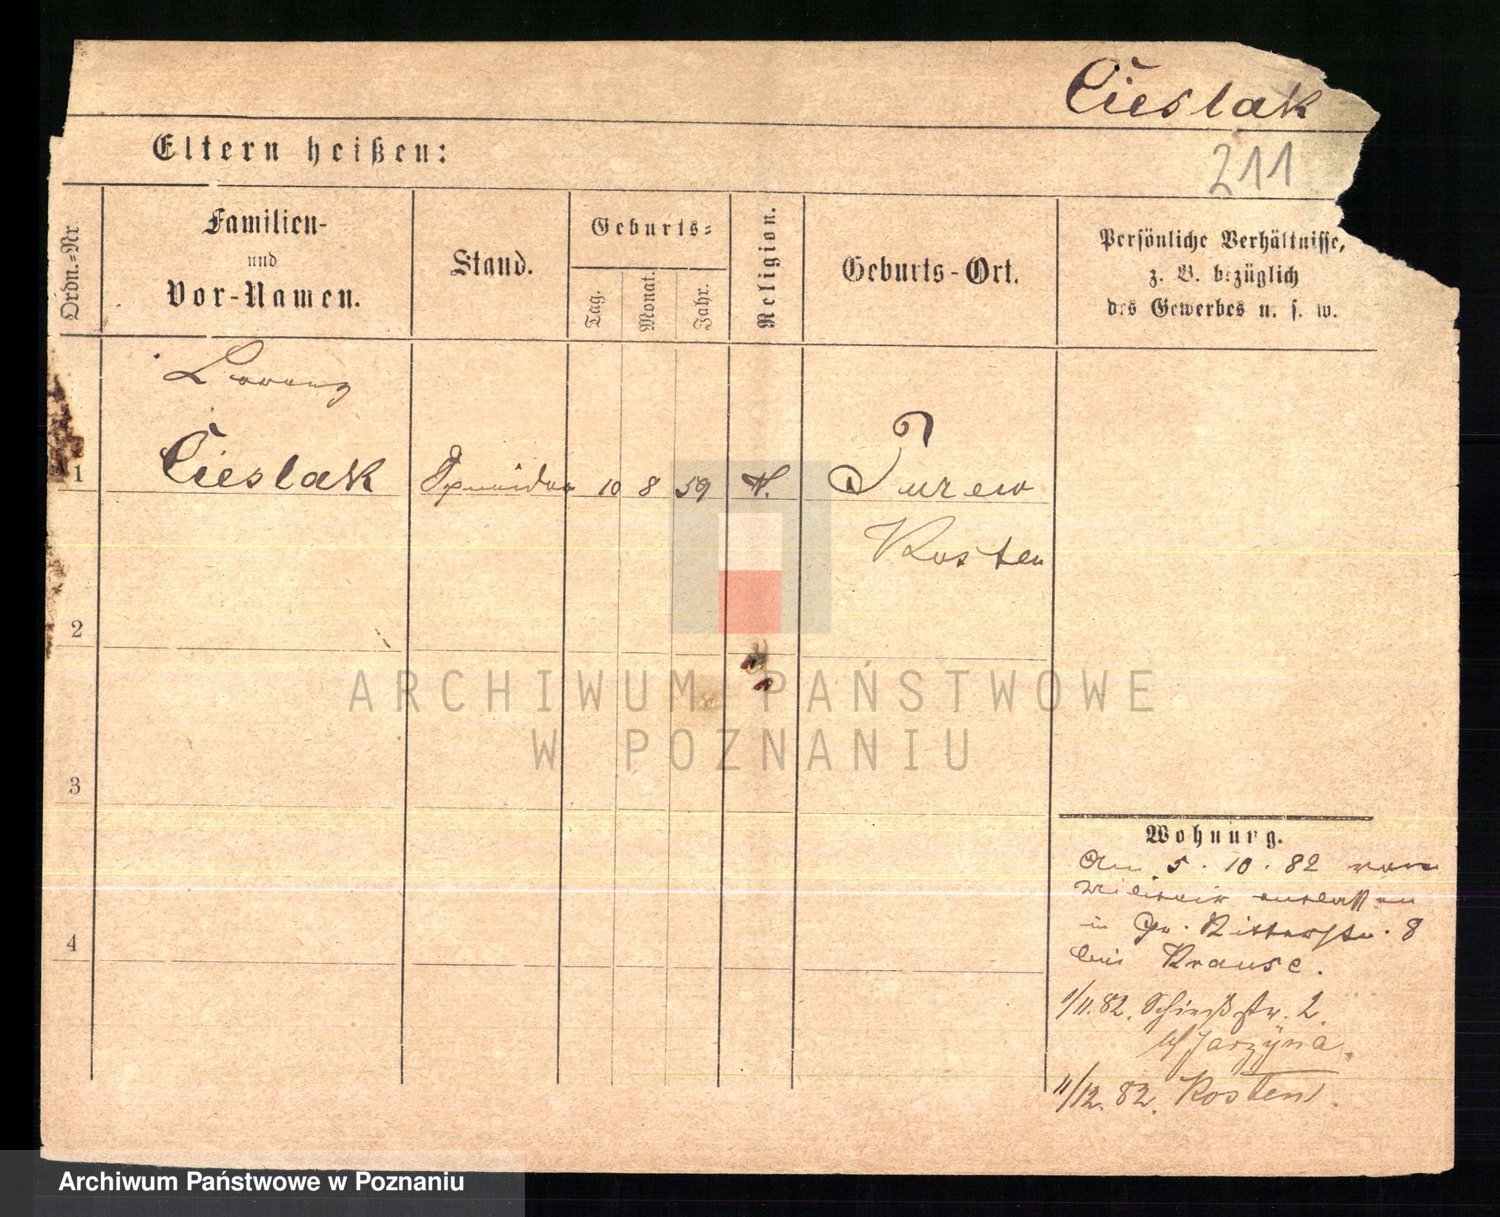 Cieslak
Eltern heißen:
211
Ordn.=Nr.
Familien-
und
Vor-Namen.
Stand.
Geburts=
Tag.
Monat.
Jahr.
Religion.
Geburts-Ort.
Persönliche Verhältnisse,
z. B. bezüglich
des Gewerbes u. s. w.
Lorenz
1
Cieslak
10
8
59
K.
Turew
Kosten
2
3
4
Wohnung.
Am 5. 10. 82 vom
Militair entlassen
in Gr. Ritterstr. 8
bei Krause.
1/11. 82. Schießstr. 2.
b/ Jarzyna.
11/12. 82. Kosten.
ARCHIWUM PAŃSTWOWE
W POZNANIU
Archiwum Państwowe w Poznaniu